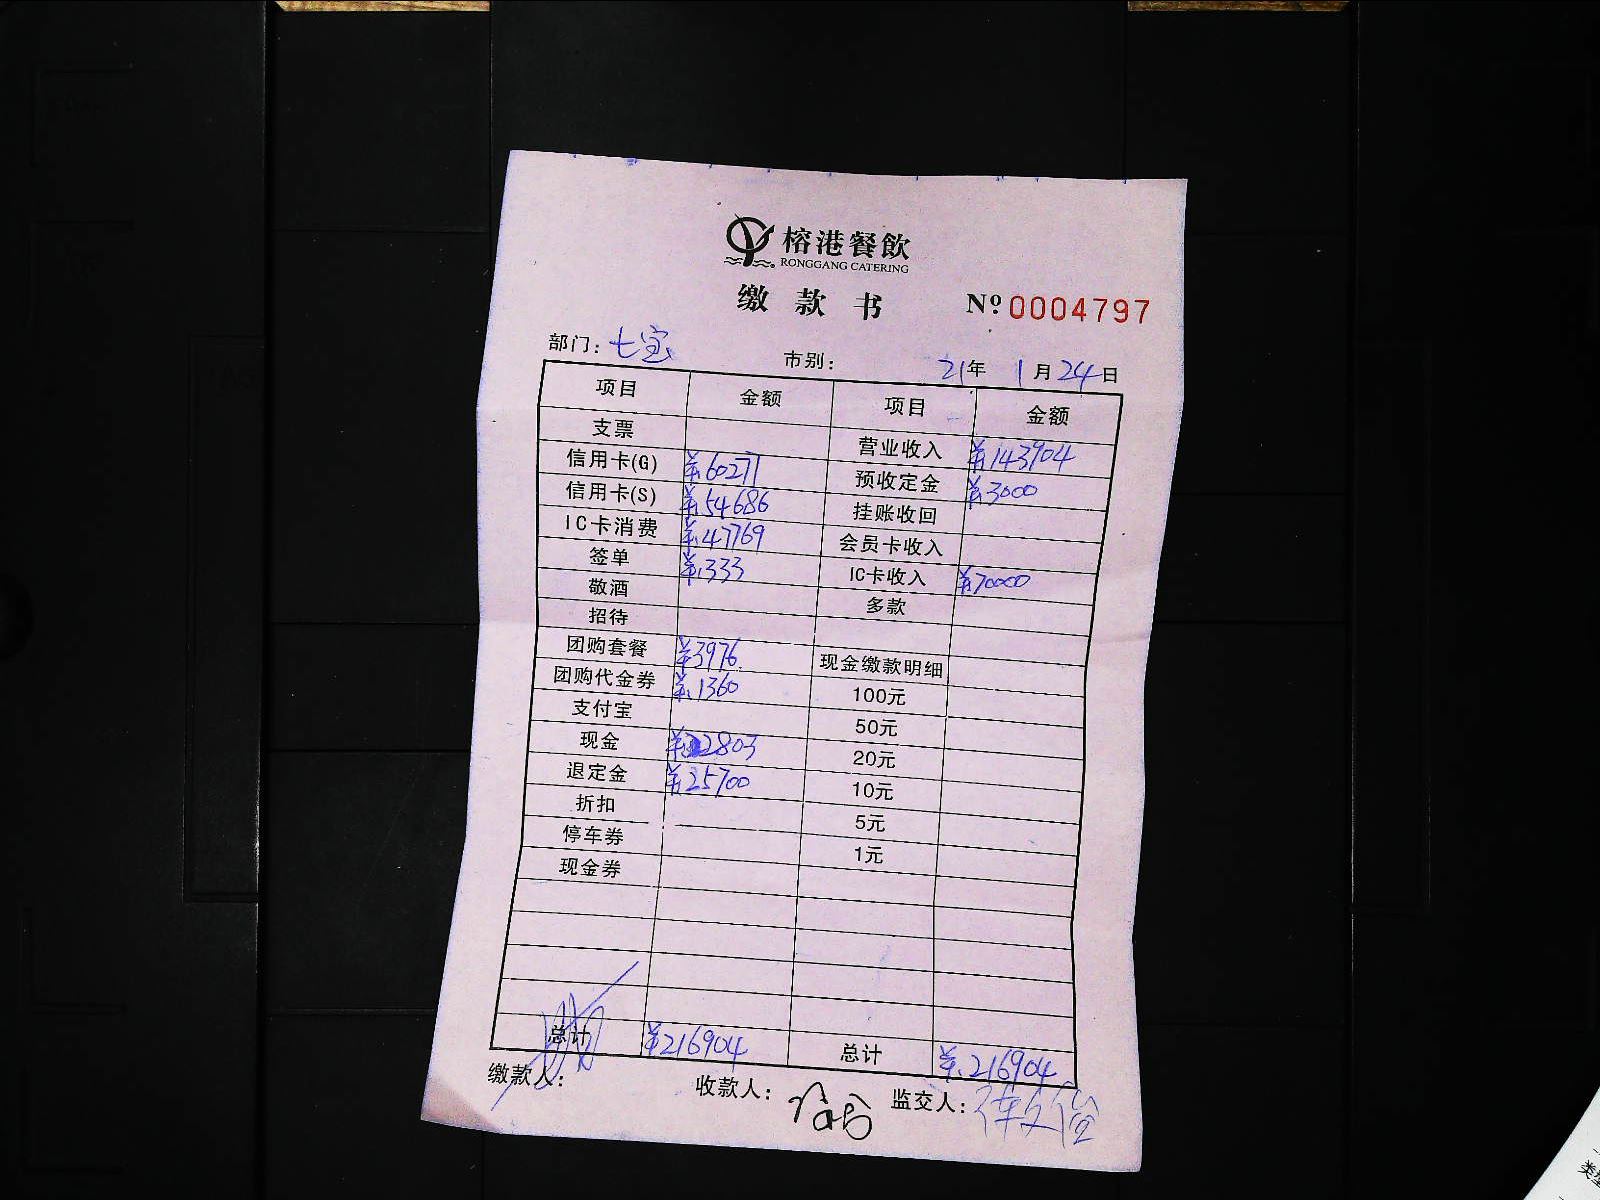 榕港餐飲
RONGGANG CATERING
缴款书 Nº 0004797
部门: 七宝 市别: 21年 1月24日
项目 金额 项目 金额
支票 营业收入 ¥143904
信用卡(G) ¥60277 预收定金 ¥3000
信用卡(S) ¥54686 挂账收回
IC卡消费 ¥47769 会员卡收入
签单 ¥333 IC卡收入 ¥70000
敬酒 多款
招待
团购套餐 ¥3976 现金缴款明细
团购代金券 ¥1360 100元
支付宝 50元
现金 ¥22803 20元
退定金 ¥25700 10元
折扣 5元
停车券 1元
现金券
总计 ¥216904 总计 ¥216904
缴款人: 收款人: 监交人: